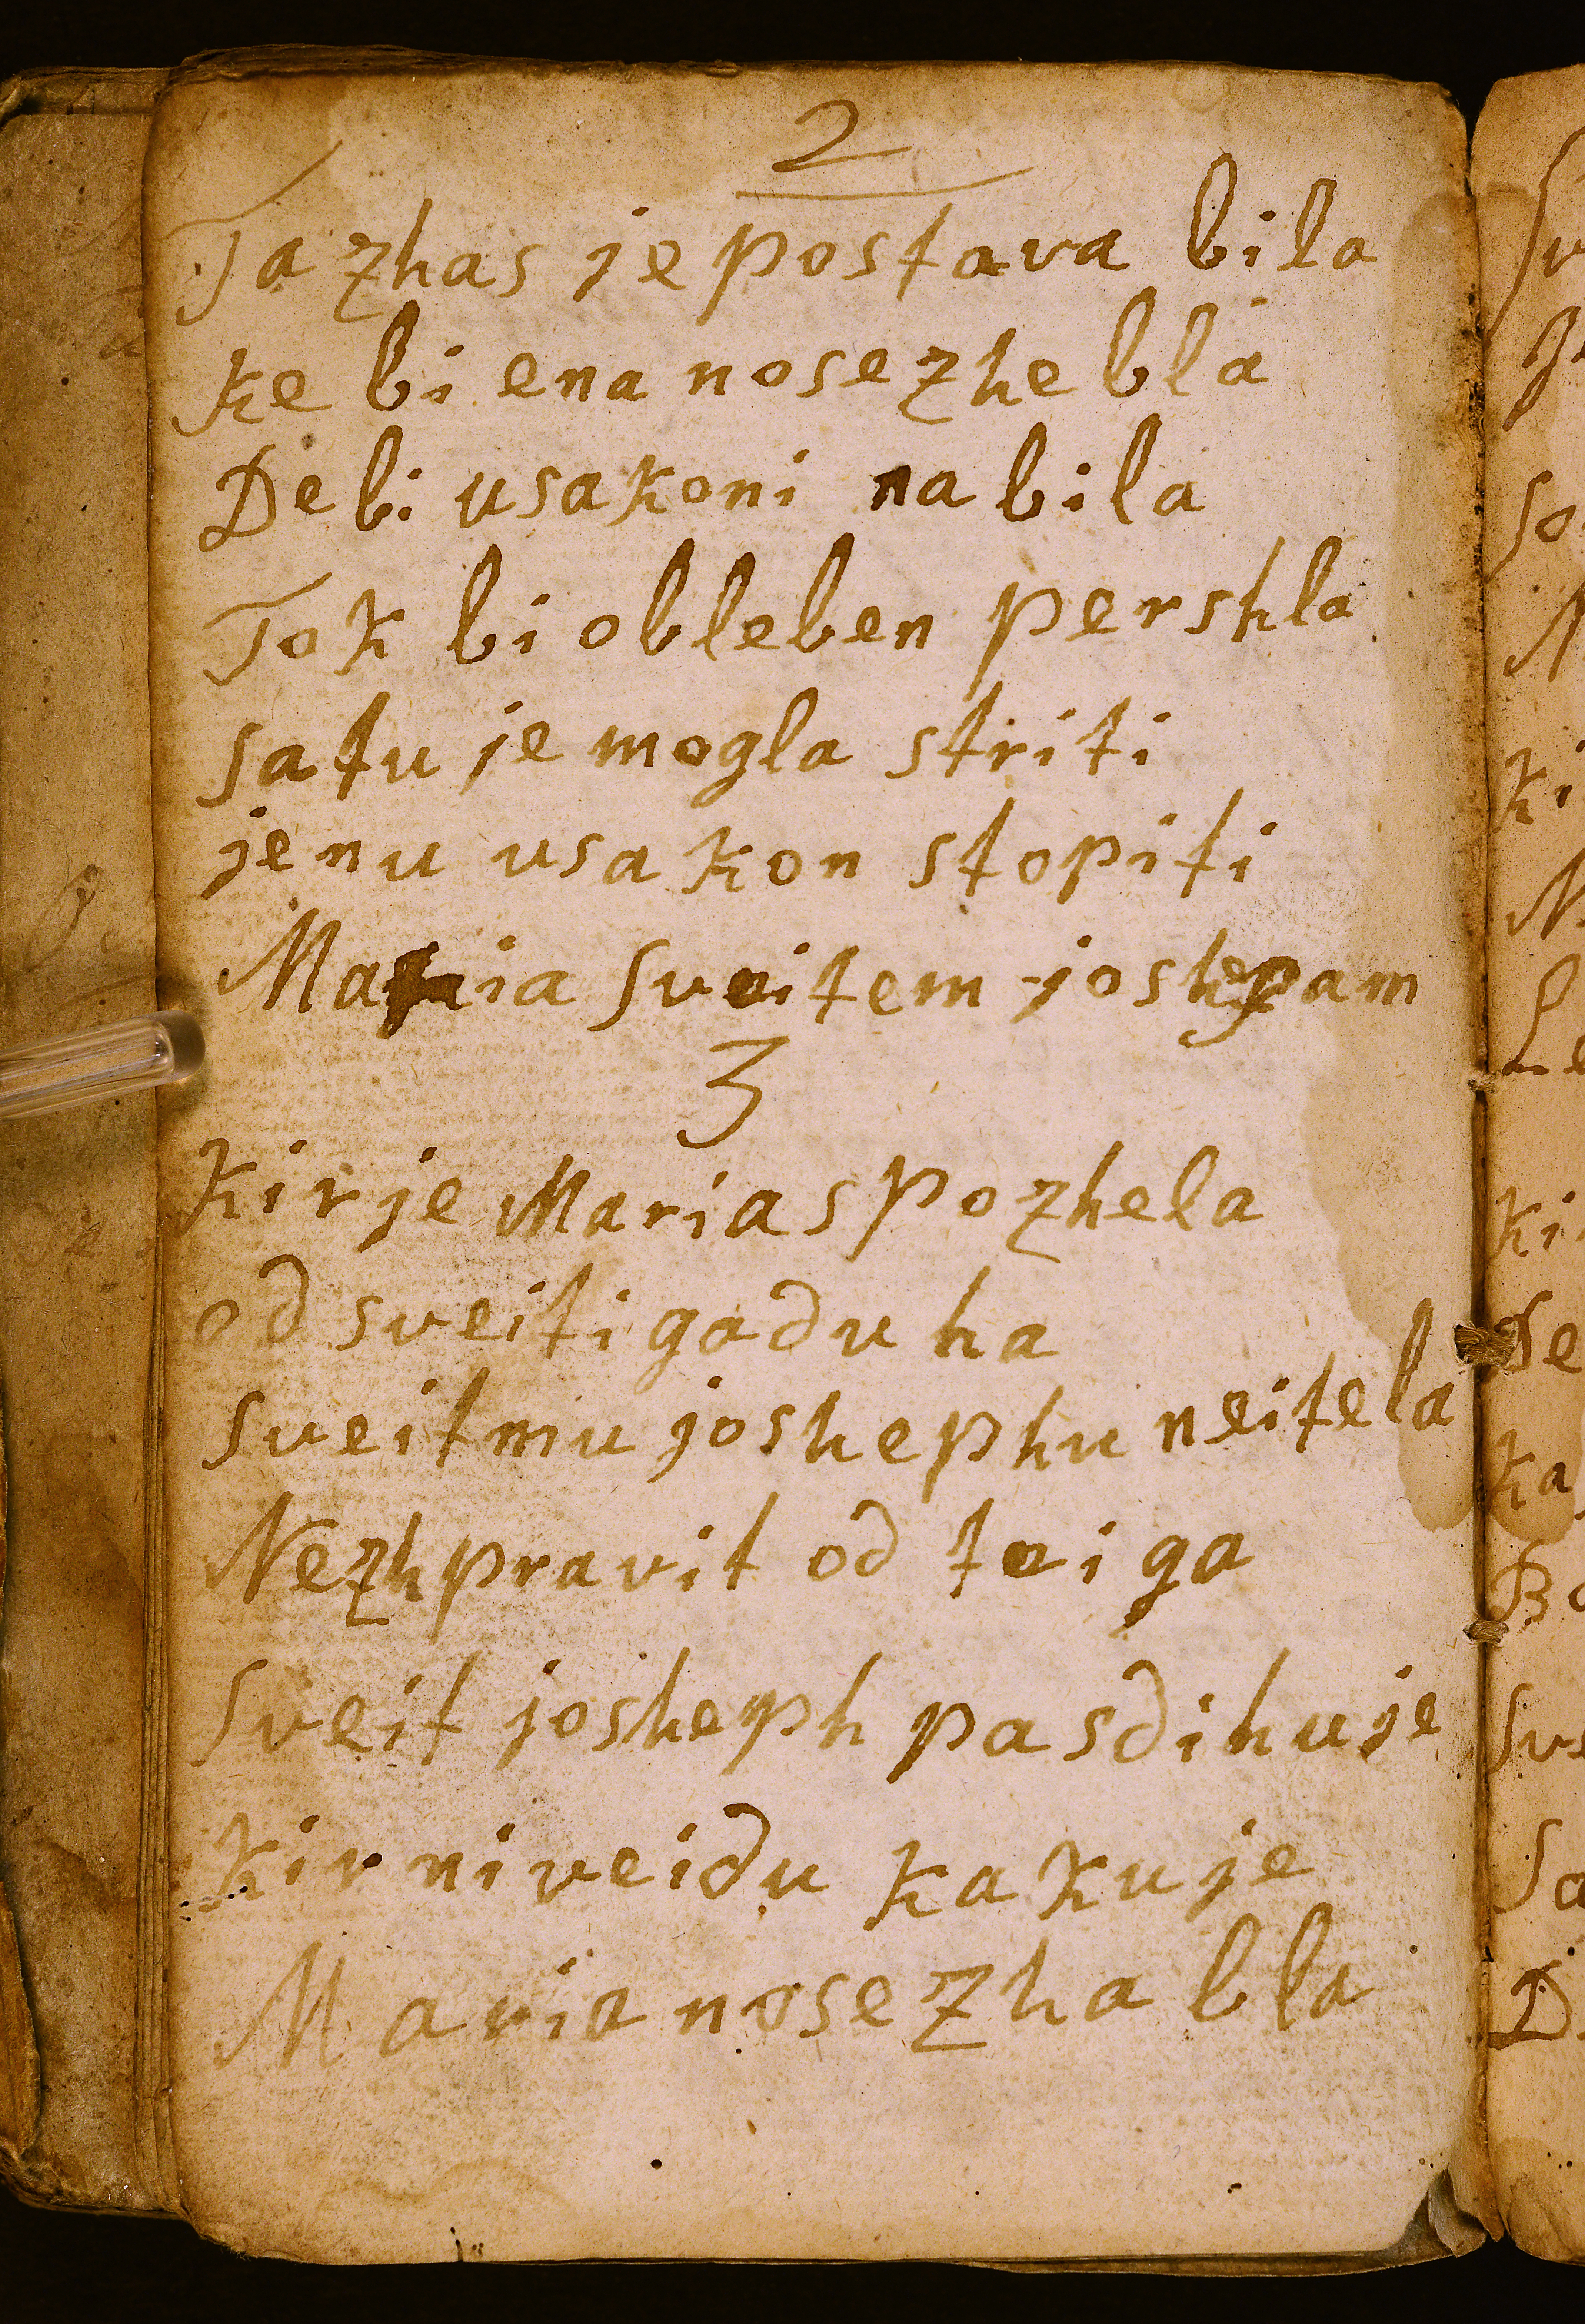 2
Ta zhas je postava bila
ke bi ena nosezhe bla
De bi usakoni na bila
Tok bi ob leben pershla
satu je mogla striti
jenu usakon stopiti
Maria sveitem joshepam
3
Kir je Maria spozhela
od sveitiga duha
sveitmu joshephu nei tela
Nezh pravit od teiga
sveit josheph pa sdihuje
kir ni veidu kaku je
Maria nosezha bla